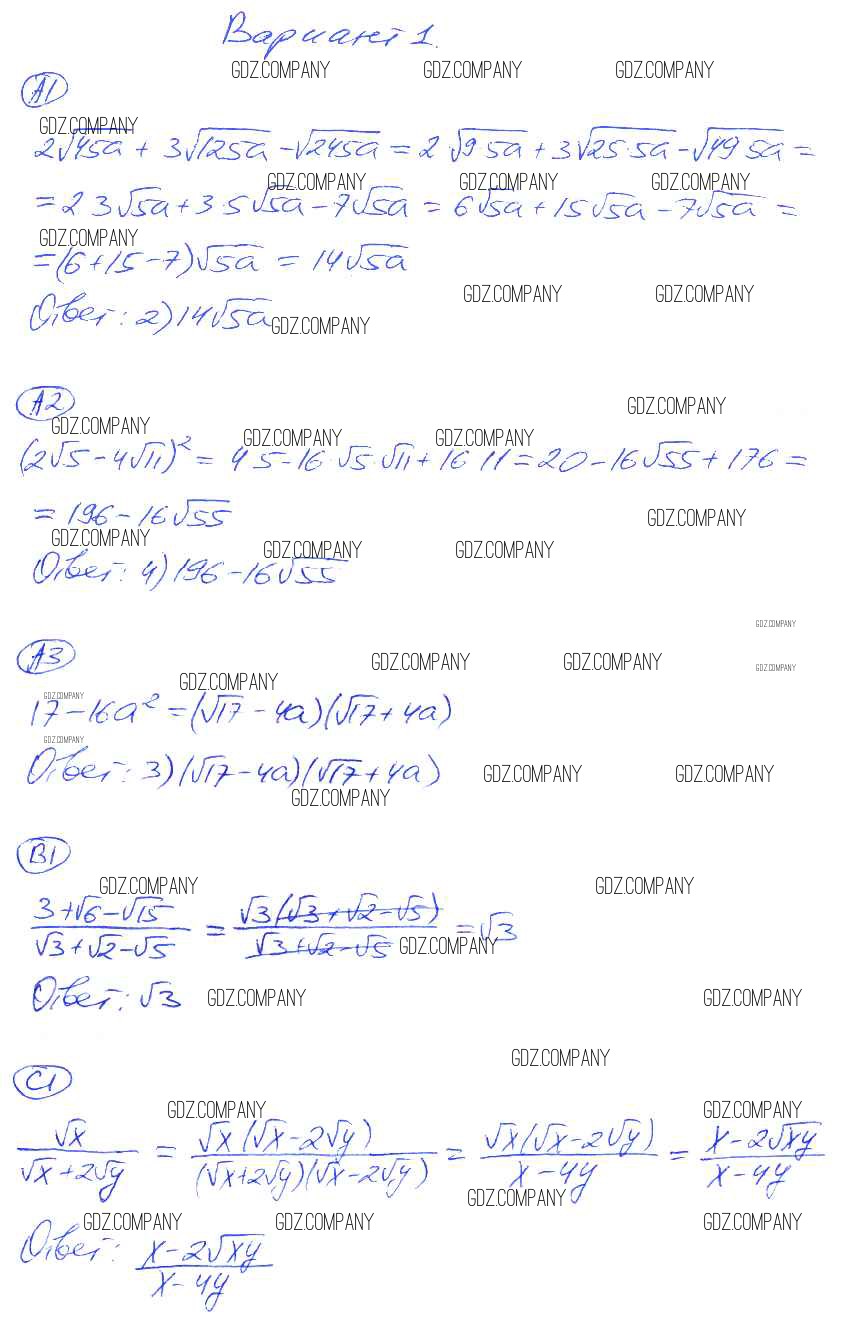 Вариант 1.
GDZ.COMPANY GDZ.COMPANY GDZ.COMPANY
A1
GDZ.COMPANY
2√45a + 3√125a - √245a = 2√9·5a + 3√25·5a - √49·5a =
GDZ.COMPANY GDZ.COMPANY GDZ.COMPANY
= 2·3√5a + 3·5√5a - 7√5a = 6√5a + 15√5a - 7√5a =
GDZ.COMPANY
= (6 + 15 - 7)√5a = 14√5a
GDZ.COMPANY GDZ.COMPANY
Ответ: 2) 14√5a
GDZ.COMPANY
A2
GDZ.COMPANY
GDZ.COMPANY GDZ.COMPANY GDZ.COMPANY
(2√5 - 4√11)² = 4·5 - 16·√5·√11 + 16·11 = 20 - 16√55 + 176 =
= 196 - 16√55
GDZ.COMPANY
GDZ.COMPANY GDZ.COMPANY GDZ.COMPANY
Ответ: 4) 196 - 16√55
GDZ.COMPANY
A3
GDZ.COMPANY GDZ.COMPANY GDZ.COMPANY
GDZ.COMPANY
GDZ.COMPANY
17 - 16a² = (√17 - 4a)(√17 + 4a)
GDZ.COMPANY
Ответ: 3) (√17 - 4a)(√17 + 4a)
GDZ.COMPANY GDZ.COMPANY
GDZ.COMPANY
B1
GDZ.COMPANY GDZ.COMPANY
(3 + √6 - √15)/(√3 + √2 - √5) = (√3(√3 + √2 - √5))/(√3 + √2 - √5) = √3
GDZ.COMPANY
Ответ: √3
GDZ.COMPANY GDZ.COMPANY
GDZ.COMPANY
C1
GDZ.COMPANY GDZ.COMPANY
√x/(√x + 2√y) = (√x(√x - 2√y))/((√x + 2√y)(√x - 2√y)) = (√x(√x - 2√y))/(x - 4y) = (x - 2√xy)/(x - 4y)
GDZ.COMPANY
GDZ.COMPANY GDZ.COMPANY GDZ.COMPANY
Ответ: (x - 2√xy)/(x - 4y)